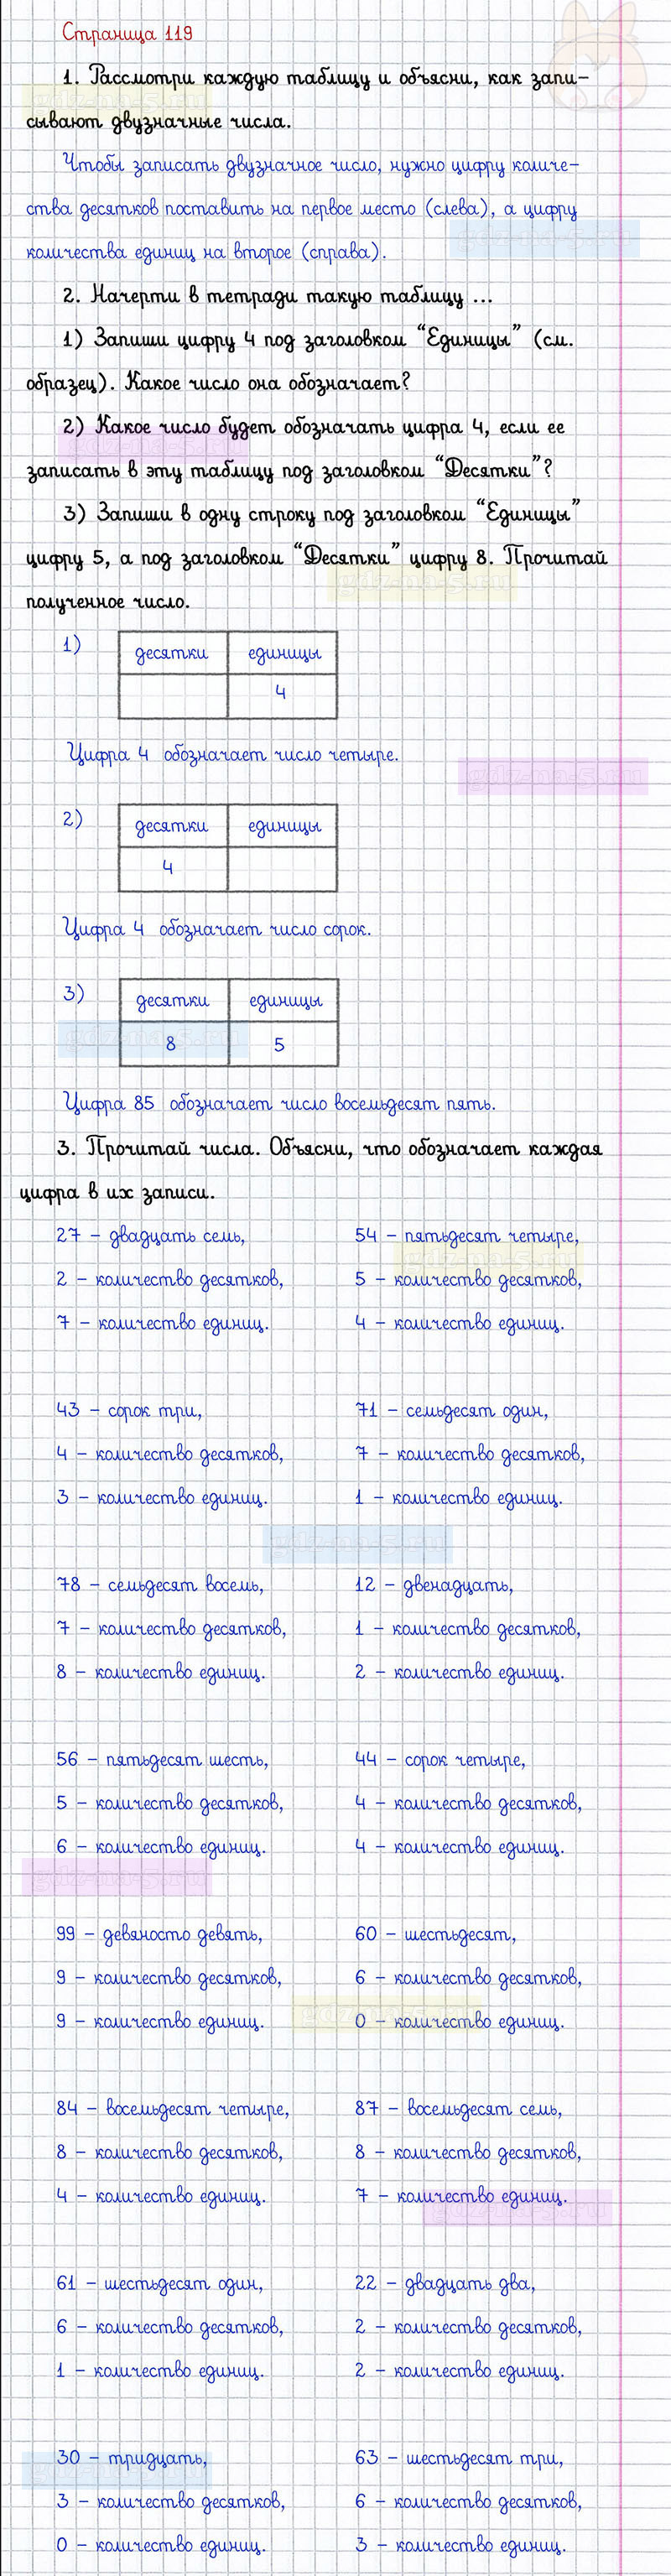 Страница 119
1. Рассмотри каждую таблицу и объясни, как запи-
сывают двузначные числа.
Чтобы записать двузначное число, нужно цифру количе-
ства десятков поставить на первое место (слева), а цифру
количества единиц на второе (справа).
2. Начерти в тетради такую таблицу ...
1) Запиши цифру 4 под заголовком “Единицы” (см.
образец). Какое число она обозначает?
2) Какое число будет обозначать цифра 4, если ее
записать в эту таблицу под заголовком “Десятки”?
3) Запиши в одну строку под заголовком “Единицы”
цифру 5, а под заголовком “Десятки” цифру 8. Прочитай
полученное число.
1) десятки единицы
4
Цифра 4 обозначает число четыре.
2) десятки единицы
4
Цифра 4 обозначает число сорок.
3) десятки единицы
8 5
Цифра 85 обозначает число восемьдесят пять.
3. Прочитай числа. Объясни, что обозначает каждая
цифра в их записи.
27 – двадцать семь, 54 – пятьдесят четыре,
2 – количество десятков, 5 – количество десятков,
7 – количество единиц. 4 – количество единиц.
43 – сорок три, 71 – семьдесят один,
4 – количество десятков, 7 – количество десятков,
3 – количество единиц. 1 – количество единиц.
78 – семьдесят восемь, 12 – двенадцать,
7 – количество десятков, 1 – количество десятков,
8 – количество единиц. 2 – количество единиц.
56 – пятьдесят шесть, 44 – сорок четыре,
5 – количество десятков, 4 – количество десятков,
6 – количество единиц. 4 – количество единиц.
99 – девяносто девять, 60 – шестьдесят,
9 – количество десятков, 6 – количество десятков,
9 – количество единиц. 0 – количество единиц.
84 – восемьдесят четыре, 87 – восемьдесят семь,
8 – количество десятков, 8 – количество десятков,
4 – количество единиц. 7 – количество единиц.
61 – шестьдесят один, 22 – двадцать два,
6 – количество десятков, 2 – количество десятков,
1 – количество единиц. 2 – количество единиц.
30 – тридцать, 63 – шестьдесят три,
3 – количество десятков, 6 – количество десятков,
0 – количество единиц. 3 – количество единиц.